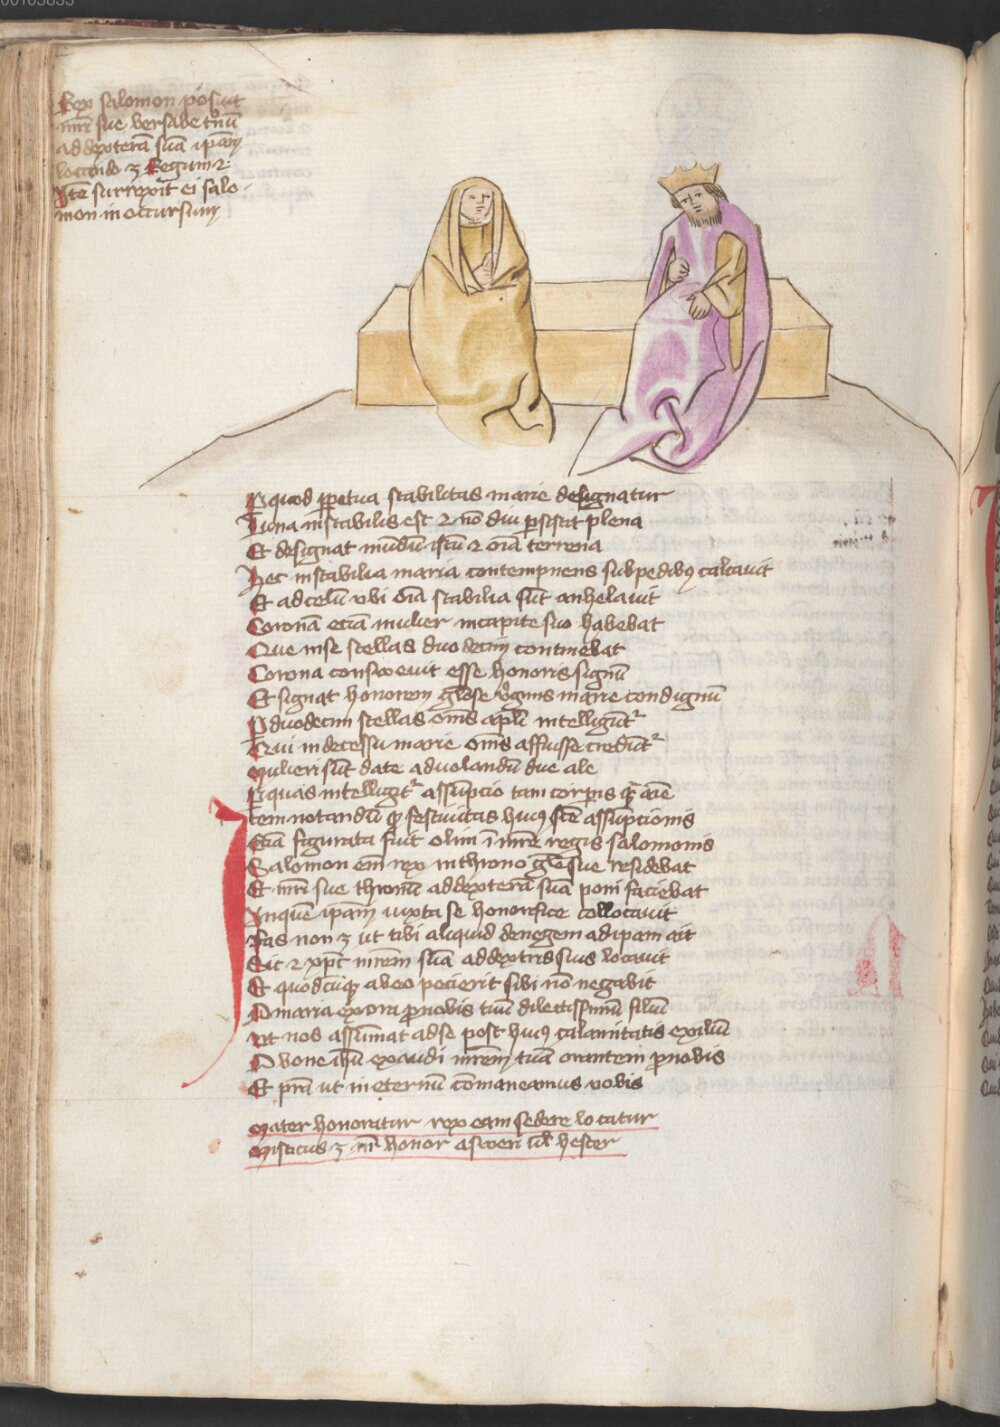 Rex salomon posuit
mr̄i sue bersabe tronū
ad dexterā suā ipam̄
locando 3 Regum 2
Itē surrexit ei salo
mon in occursum
P quod ꝑpetua stabilitas marie designatur
Luna instabilis est ⁊ nō diu ꝑsistit plena
Et designat mūdū istū ⁊ oīa terrena
Hec instabilia maria contempnens sub pedibꝰ calcauit
Et ad celū vbi oīa stabilia sūt anhelauit
Coronā etiā mulier in capite suo habebat
Que in se stellas duodecim continebat
Corona consweuit esse honoris signū
Et signat honorem gl̄ose v̄ginis marie condignū
P duodecim stellas om̄s apl̄i intelligūtᷣ
Qui in decessu marie om̄s affuisse credūtᷣ
Mulieri sūt date ad uolandū due ale
P quas intelligitᷣ assūpcio tam corporis ꝙ̄ aīe
Item notandū ꝙ festiuitas huiꝰ scē assūpcionis
Etiā figurata fuit olim ī mr̄e regis salomonis
Salomon em̄ rex in throno gl̄e sue residebat
Et mr̄i sue thronū ad dexterā suā poni faciebat
In quē ipam̄ iuxta se honorifice collocauit
Fas non ꝫ ut tibi aliquid denegem ad ipam ait
Sic ⁊ xp̄c mr̄em suā a dextris suis locauit
Et quodcūqꝫ ab eo pecierit sibi nō negabit
O maria exora ꝓ nobis tuū dilectissimū filiū
Vt nos assūmat ad se post huiꝰ calamitatis exiliū
O bone ih̄u exaudi mr̄em tuā orantem ꝓ nobis
Et pr̄a ut in eternū cōmaneamus vobis
Mater honoratur rex eam sedere locatur
Misticus ꝫ mr̄i honor asweri ul̄ hester